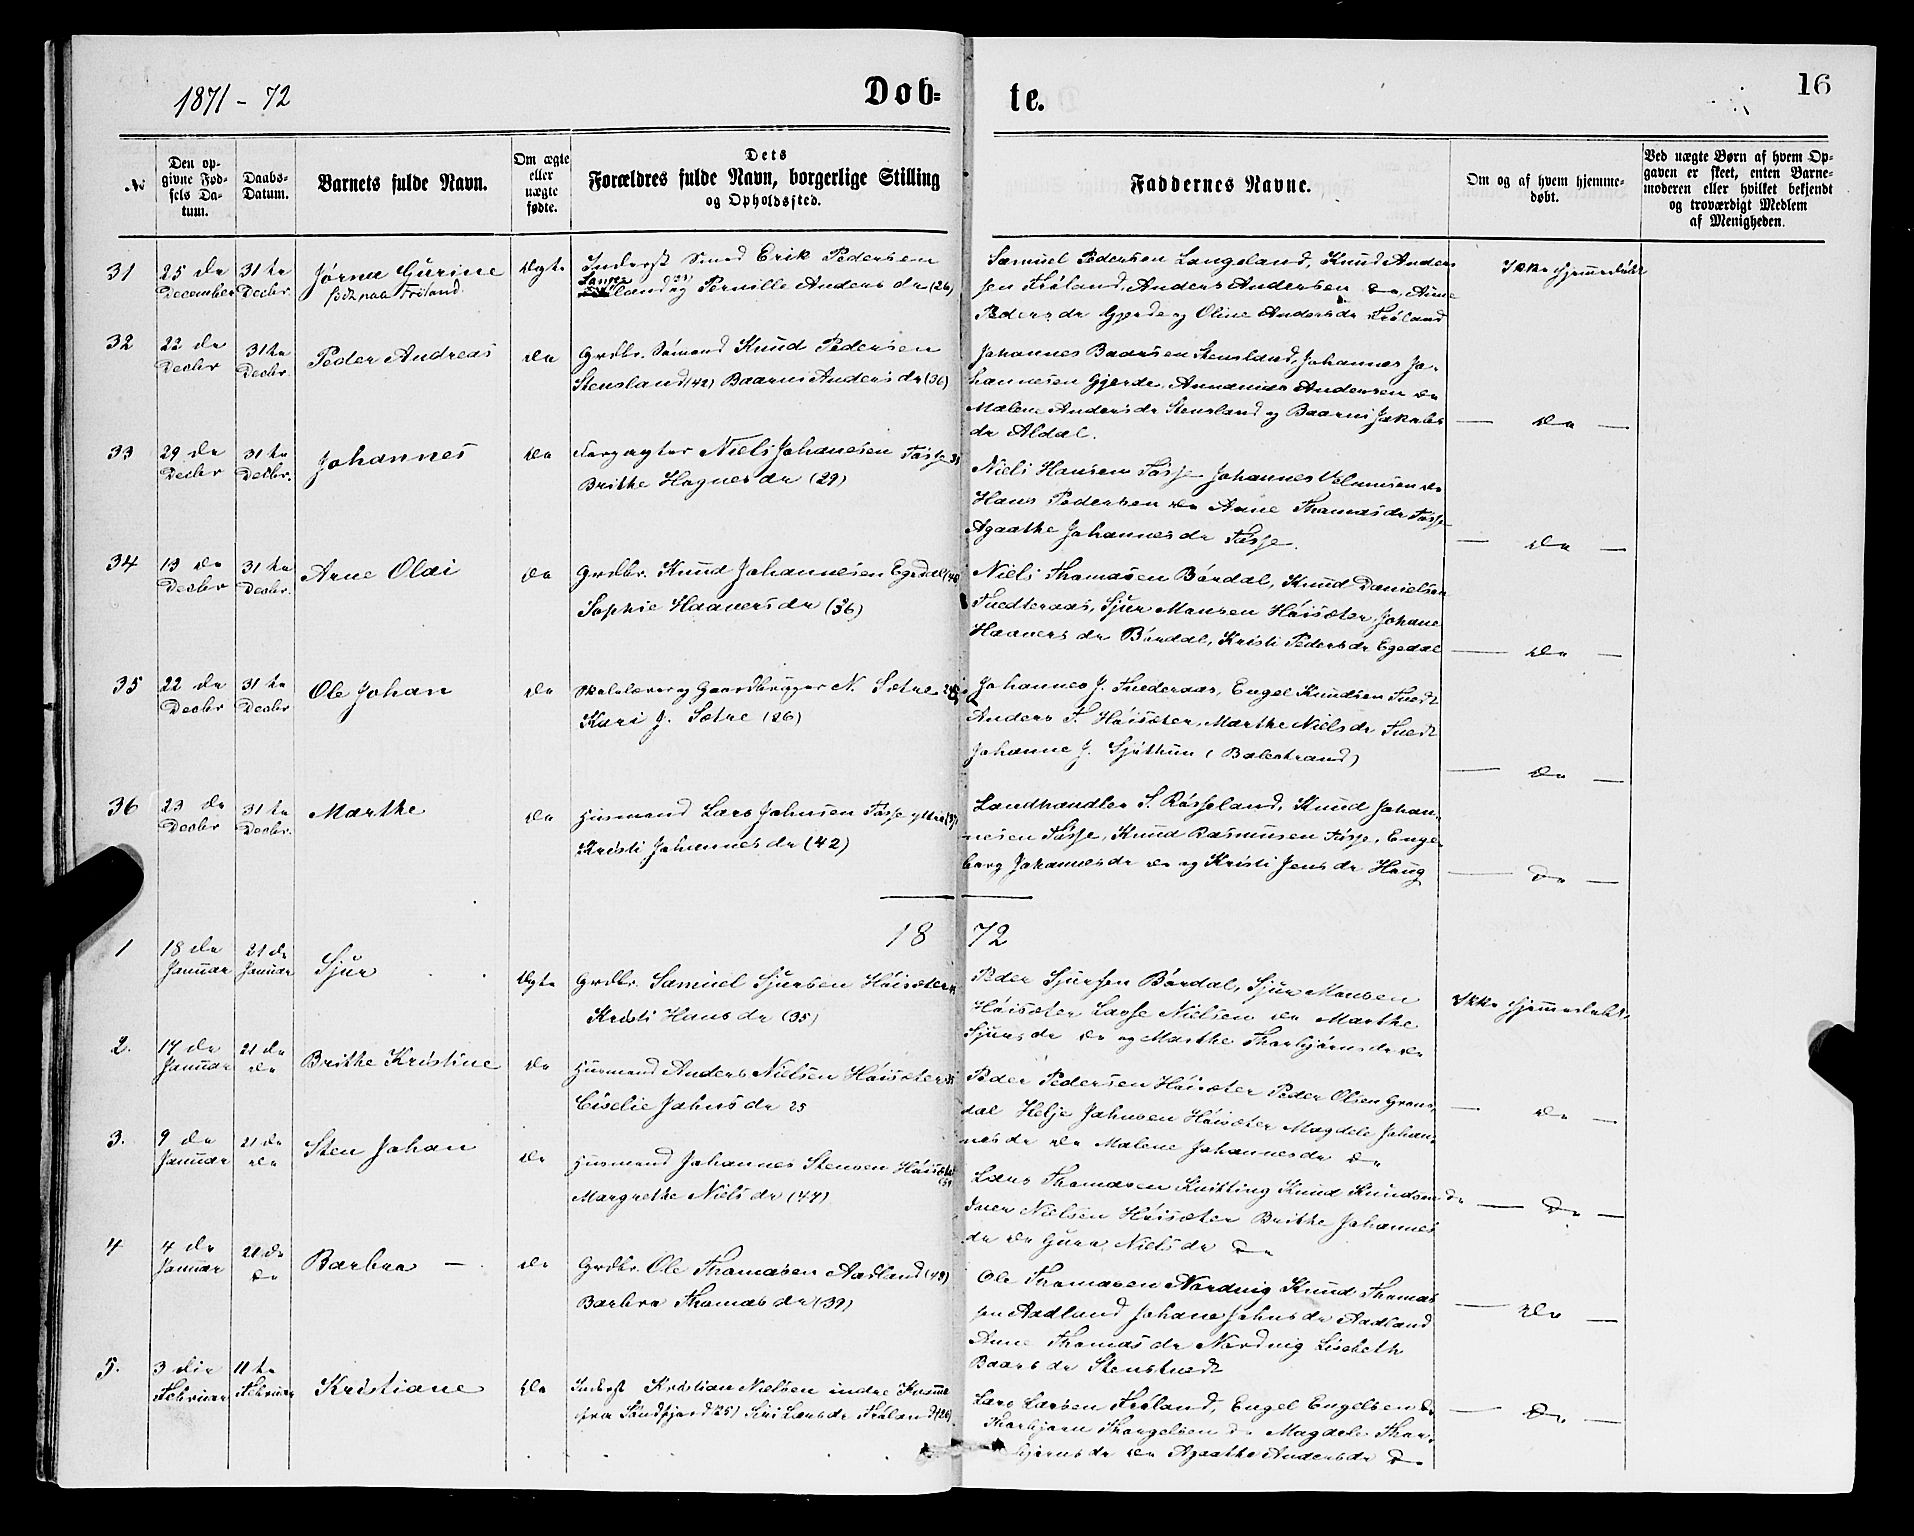 1871-72
Døb=
te.
16
№
Den op-
givne Fød-
sels Da-
tum.
Daabs-
Datum.
Barnets fulde Navn.
Om ægte
eller
uægte
fødte.
Dets
Forældres fulde Navn, borgerlige Stilling
og Opholdssted.
Faddernes Navne.
Om og af hvem hjemme-
døbt.
Ved uægte Børn af hvem Op-
gaven er skeet, enten Barne-
moderen eller hvilket bekjendt
og troværdigt Medlem
af Menigheden.
31
25 de
December
31te
Decbr
Jørna Gurine
født paa Frøland.
Ægte
Inderst Smed Erik Pedersen
Lange
land og Pernille Anders dr (26)
Samuel Pedersen Langeland, Knud Anders
sen Frøland, Anders Andersen do, Anne
Peders dr Gjerde og Oline Anders dr Frøland
Ikke hjemmedøbt
32
22 de
Decbr
31te
Decbr.
Peder Andreas
do
Grdbr. Sømand Knud Pedersen
Stensland (42) Baarni Anders dr (36)
Johannes Baarsen Stensland, Johannes Jo-
hannesen Gjerde, Ananias Andersen do
Malene Anders dr Stensland og Baarni Jakobs
dr Aldal.
— do —
33
29 de
Decbr
31te
Decbr.
Johannes
do
Niels Johanesen Fosse
Brithe Hagnes dr (29)
Niels Hansen Fosse Johannes Velomsen do
Hans Pedersen do Anne Thomas dr Fosse
Agaathe Johannes dr Fosse.
— do —
34
13 de
Decbr
31te
Decbr.
Arne Olai
do
Grdbr. Knud Johannesen Egedal (40
Sophie Haavers dr (36)
Niels Thomasen Børdal, Knud Danielsen
Tuedteraas, Sjur Monsen Høisæter, Johane
Haavers dr Børdal, Kristi Peders dr Egedal
— do —
35
22 de
Decbr
31te
Decbr.
Ole Johan
do
Skolelærer og Gaardbruger N. Sætre
Kari J. Sætre (26)
Johannes J. Tuederaas, Engel Knudsen Tuedt
Anders T. Høisæter, Marthe Niels dr Tuedt
Johanne J. Sjøthun (Balestrand)
— do —
36
23 de
Decbr
31te
Decbr.
Marthe
do
Husmand Lars Johnsen Fosse ydre
Kristi Johannes dr (42)
Landhandler S. Røsseland, Knud Johan-
nesen Fosse, Knud Rasmusen Fosse, Enge-
borg Johannes dr do og Kristi Jens dr Haug
— do —
18 72
1
18 de
Januar
21 de
Januar
Sjur
Ægte
Grdbr. Samuel Sjursen Høisæter
Kristi Hans dr (35)
Peder Sjursen Børdal, Sjur Monsen
Høisæter Lasse Nielsen do Marthe
Sjurs dr do og Marthe Thorbjørns dr do
Ikke hjemmedøbt
2.
14 de
Januar
21 de
do
Brithe Kristine
do
Husmand Anders Nielsen Høisæter
Ciselie Johns dr 25
Peder Pedersen Høisæter Peder Olsen Grøns-
dal Helje Johnsen Høisæter Magdele Johan-
nes dr do Malene Johannes dr do
— do —
3.
9 de
Januar
21 de
do
Sten Johan
do
Husmand Johannes Stensen Høisæter
Margrethe Niels dr (44)
Lars Thomasen Knitting Knud Knudsen do
Iver Nielsen Høisæter Brithe Johannes
dr do Guro Niels dr do
— do —
4
4 de
Januar
21 de
do
Barbra —
do
Grdbr. Ole Thomasen Aadland (48)
Barbra Thomas dr (39)
Ole Thomasen Nordvig Knud Thomas
sen Aadland Johane Johns dr Aadland
Anne Thomas dr Nordvig Lisebeth
Baars dr Stenstuedt
— do —
5.
3 die
Februar
11te
Februar
Kristiane
do
Inderst Kristian Nielsen indre
fra Søndfjord (25) Siri Lars dr Frøland (26)
Lars Larsen Frøland, Engel Engelsen do
Thorbjørn Thorgelsen do Magdele Thor-
bjørns dr do Agaathe Anders dr do
— do —